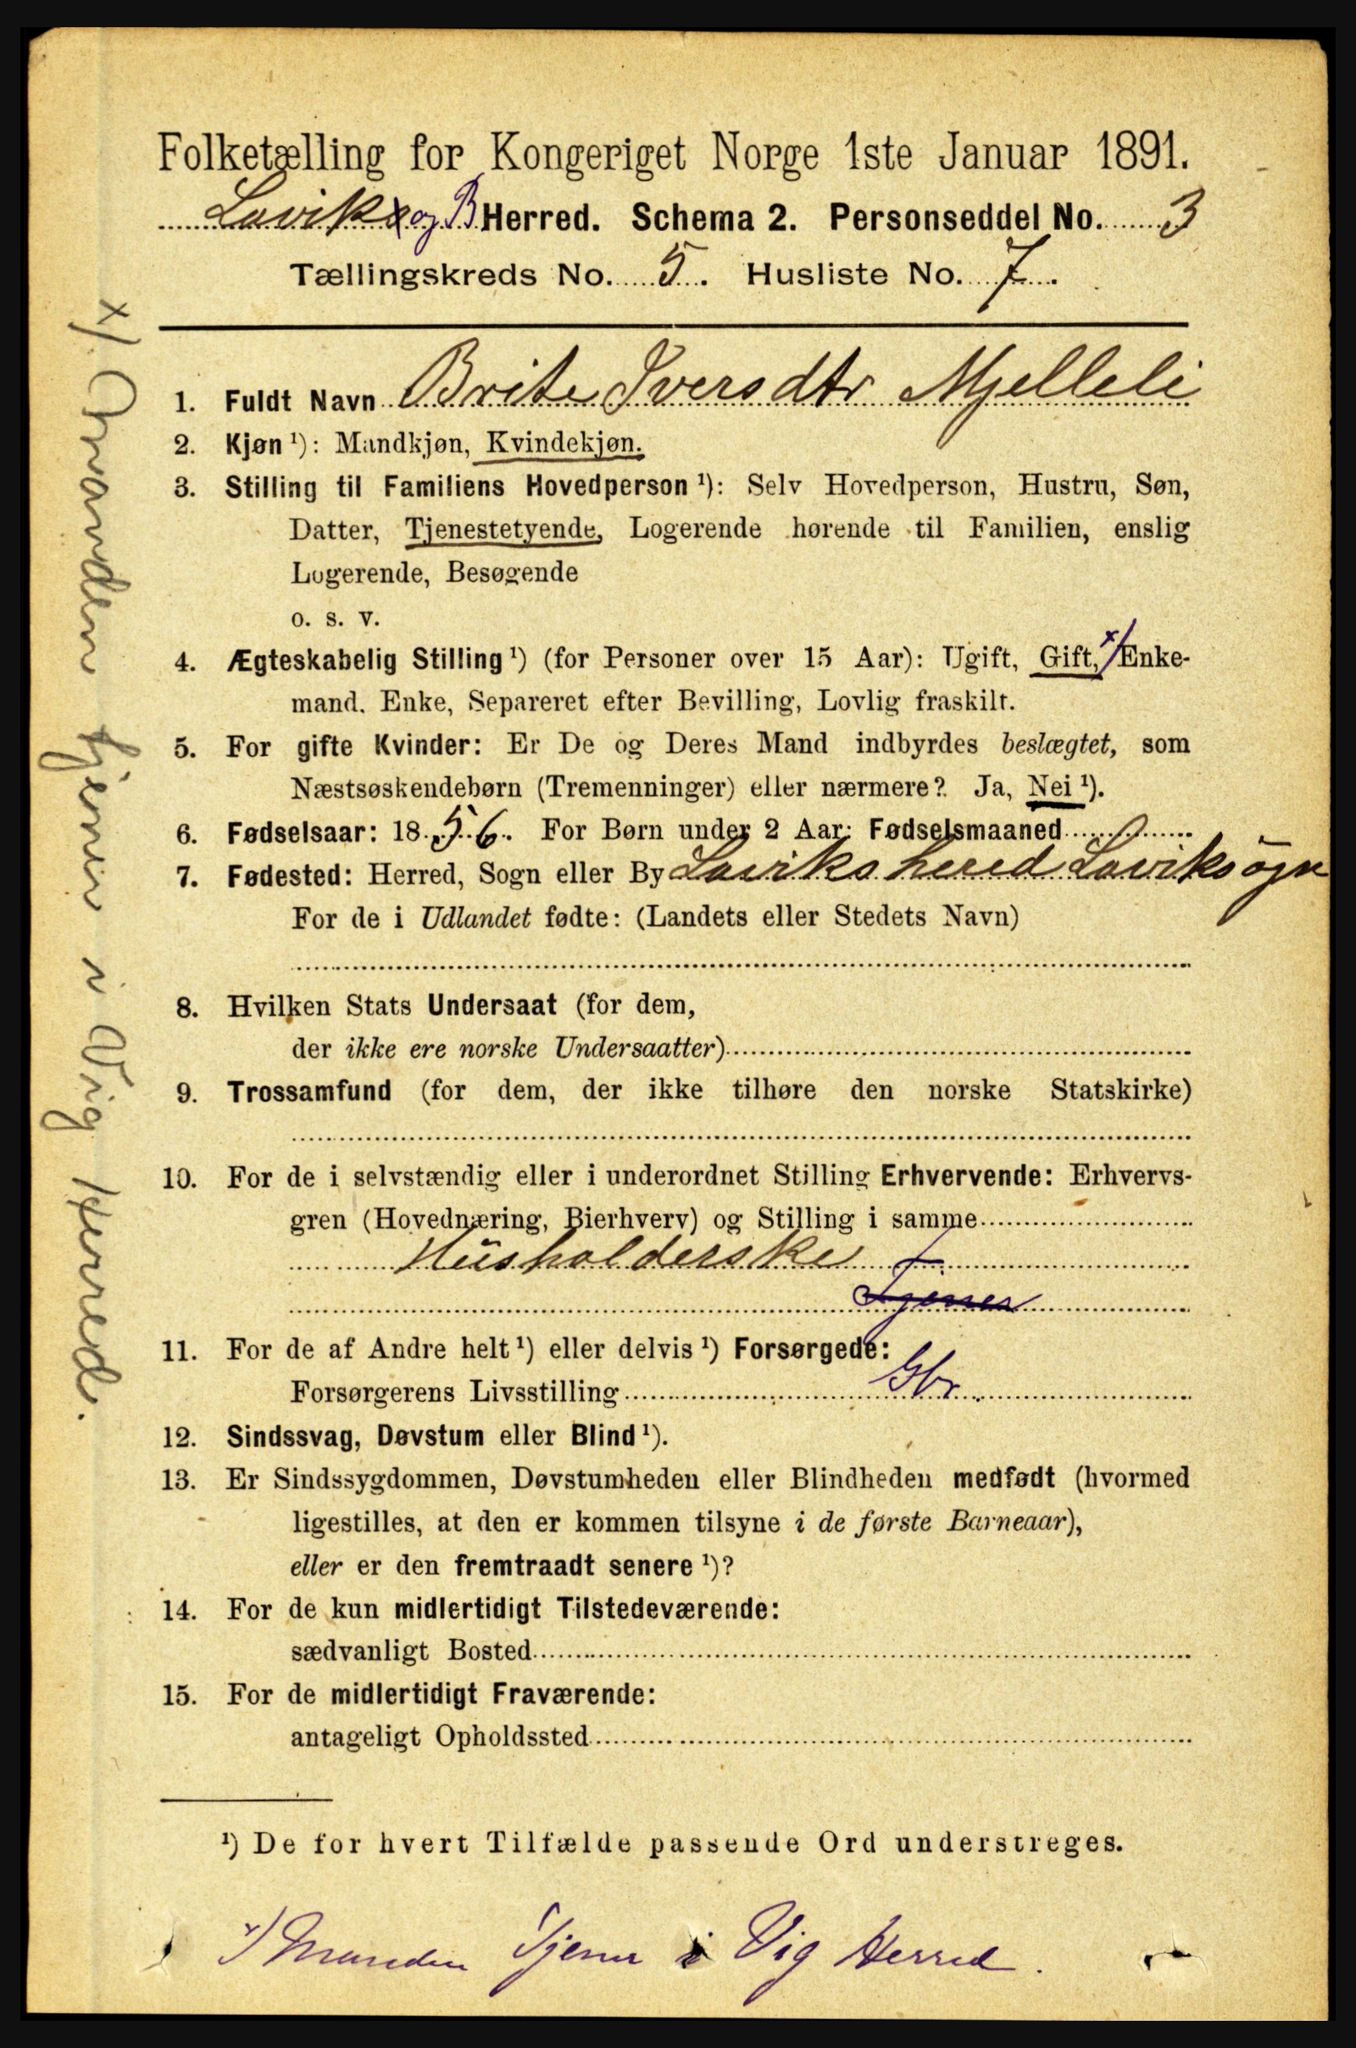 Folketælling for Kongeriget Norge 1ste Januar 1891.
Laviks og B Herred. Schema 2. Personseddel No. 3
Tællingskreds No. 5. Husliste No. 7.
1. Fuldt Navn Brite Iversdtr Mjelleli
2. Kjøn ¹): Mandkjøn, Kvindekjøn.
3. Stilling til Familiens Hovedperson ¹): Selv Hovedperson, Hustru, Søn,
Datter, Tjenestetyende, Logerende hørende til Familien, enslig
Logerende, Besøgende
o. s. v.
4. Ægteskabelig Stilling ¹) (for Personer over 15 Aar): Ugift, Gift, x/ Enke-
mand, Enke, Separeret efter Bevilling, Lovlig fraskilt.
5. For gifte Kvinder: Er De og Deres Mand indbyrdes beslægtet, som
Næstsøskendebørn (Tremenninger) eller nærmere? Ja, Nei ¹).
6. Fødselsaar: 1856. For Børn under 2 Aar: Fødselsmaaned
7. Fødested: Herred, Sogn eller By Laviks hered Laviksogn
For de i Udlandet fødte: (Landets eller Stedets Navn)
8. Hvilken Stats Undersaat (for dem,
der ikke ere norske Undersaatter)
9. Trossamfund (for dem, der ikke tilhøre den norske Statskirke)
10. For de i selvstændig eller i underordnet Stilling Erhvervende: Erhvervs-
gren (Hovednæring, Bierhverv) og Stilling i samme
Husholderske
Tjener
11. For de af Andre helt ¹) eller delvis ¹) Forsørgede:
Forsørgerens Livsstilling Gbr.
12. Sindssvag, Døvstum eller Blind ¹).
13. Er Sindssygdommen, Døvstumheden eller Blindheden medfødt (hvormed
ligestilles, at den er kommen tilsyne i de første Barneaar),
eller er den fremtraadt senere ¹)?
14. For de kun midlertidigt Tilstedeværende:
sædvanligt Bosted
15. For de midlertidigt Fraværende:
antageligt Opholdssted
¹) De for hvert Tilfælde passende Ord understreges.
x/ Manden Tjener i Vig Herred.
x/ Manden tjener i Vig Herred.